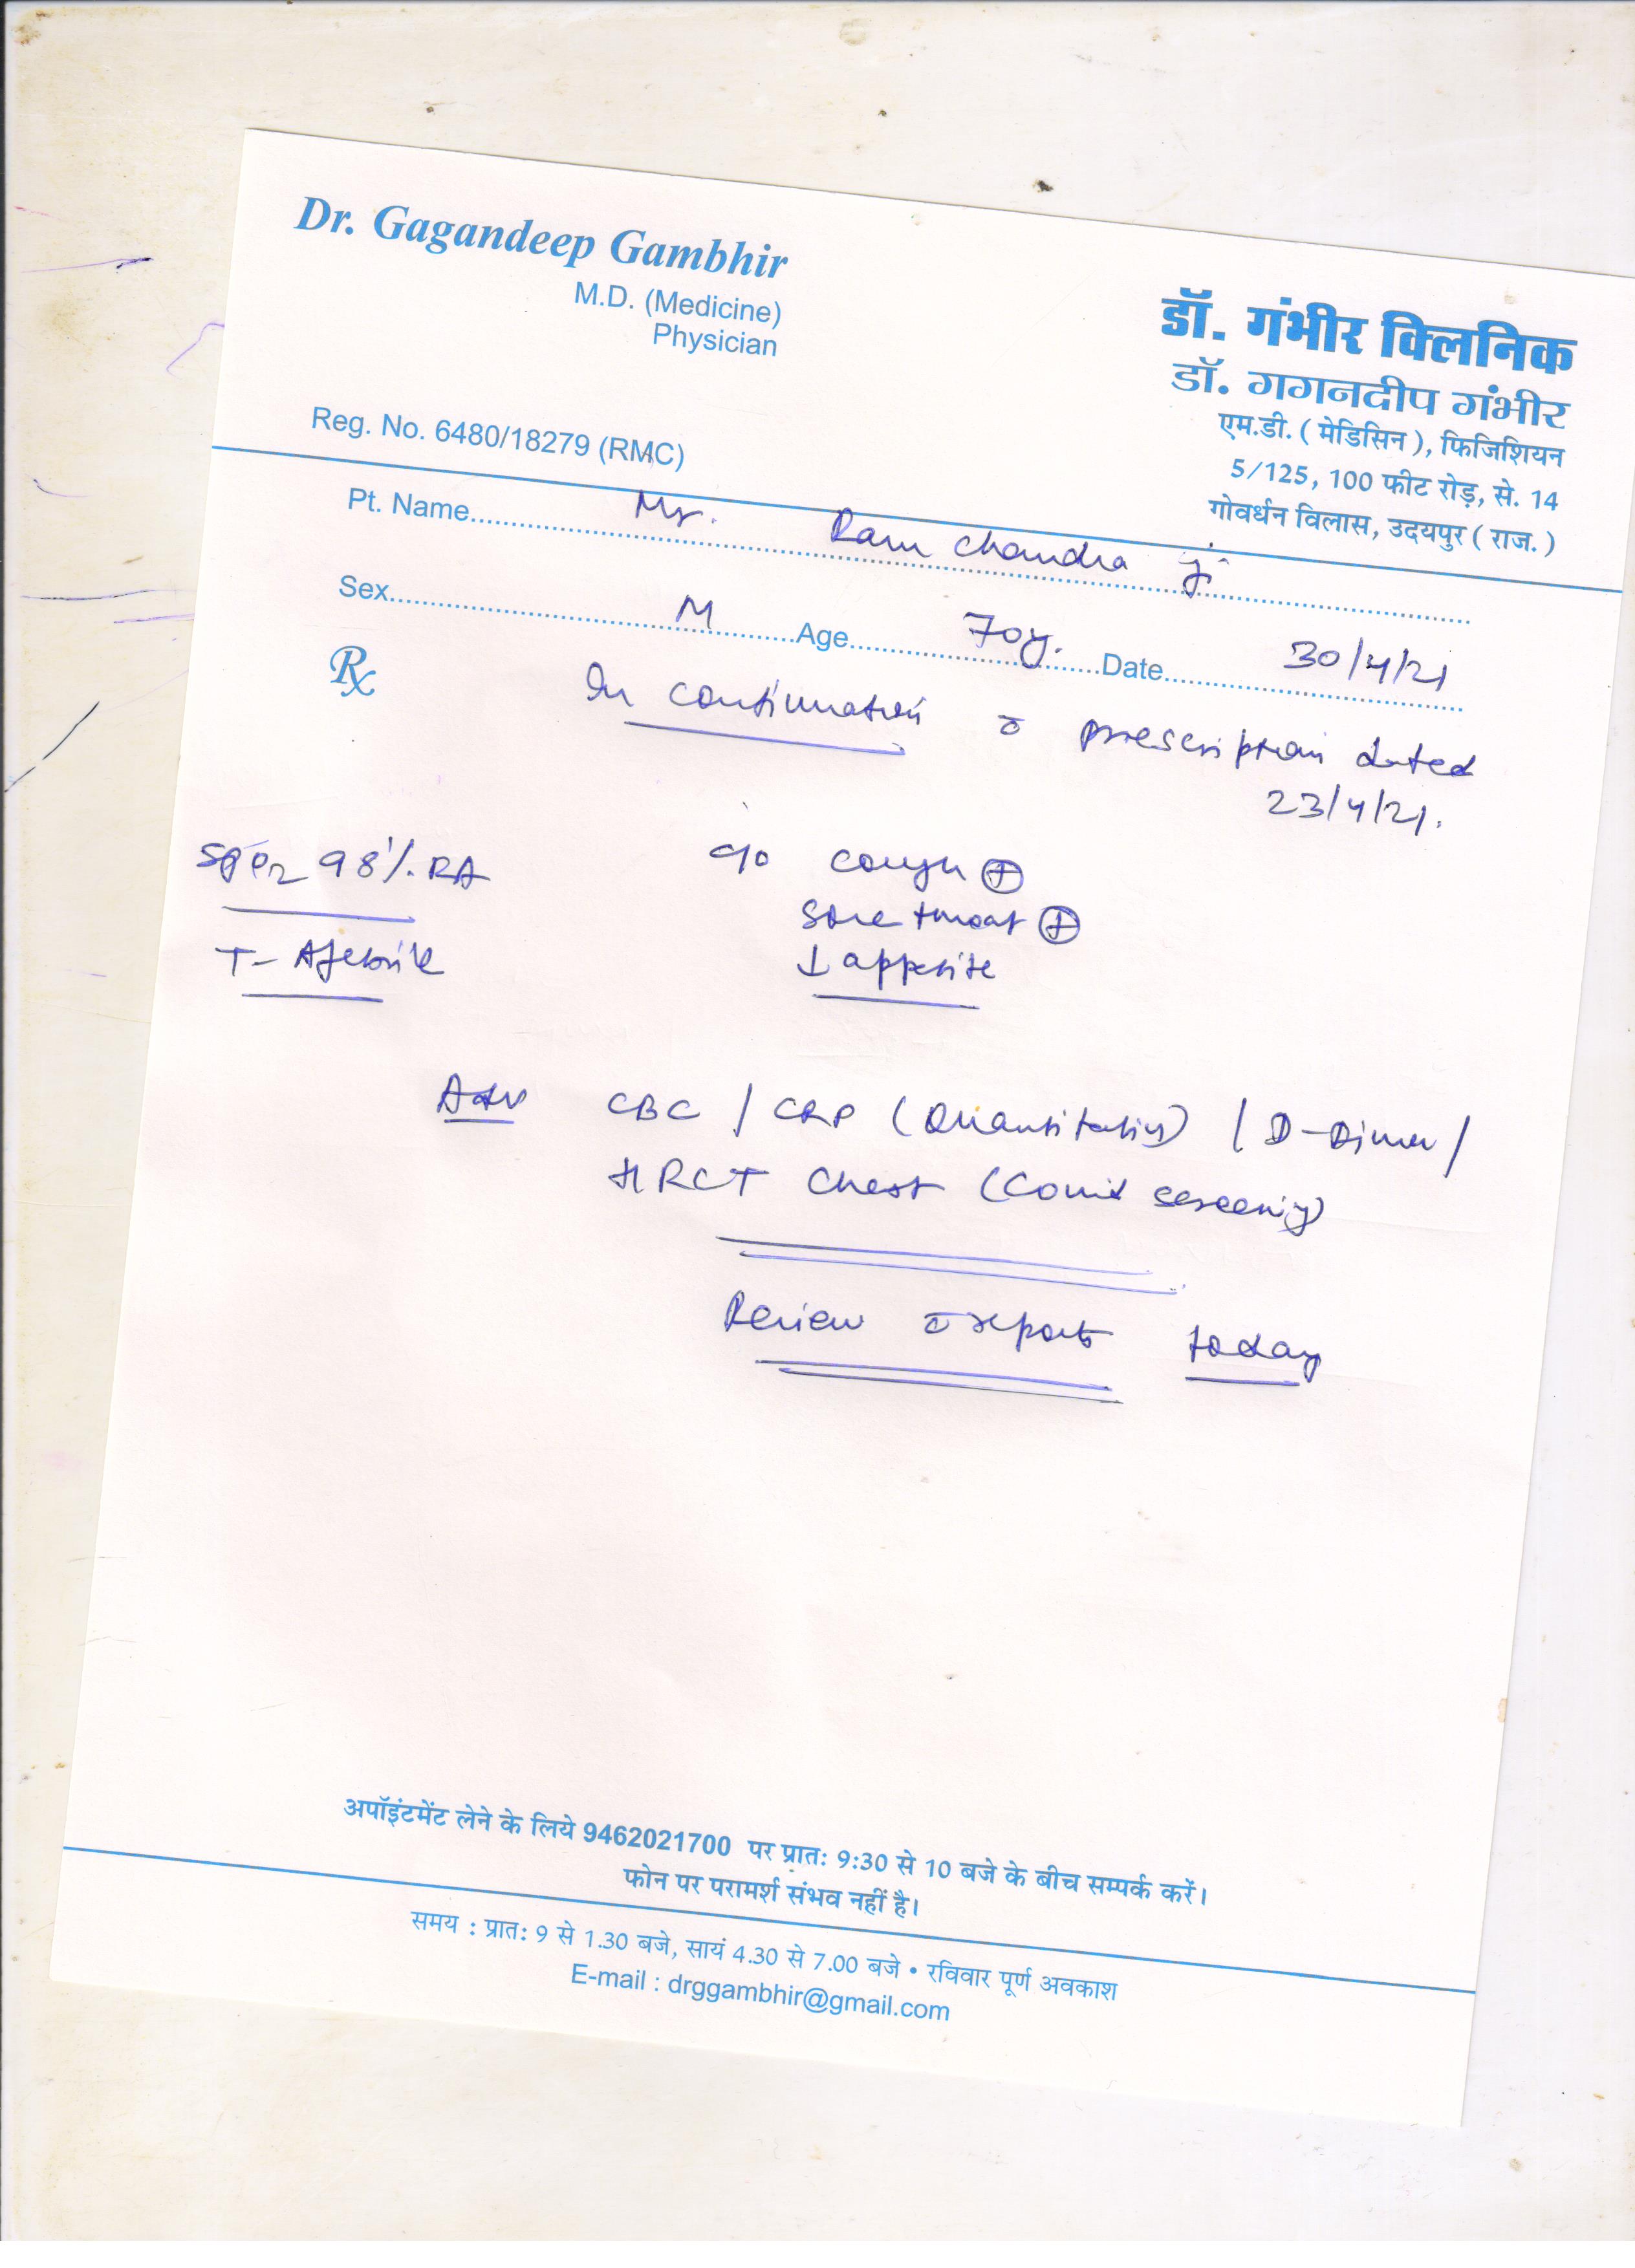 Dr. Gagandeep Gambhir
M.D. (Medicine)
Physician
Reg. No. 6480/18279 (RMC)
डॉ. गंभीर क्लिनिक
डॉ. गगनदीप गंभीर
एम.डी. ( मेडिसिन ), फिजिशियन
5/125, 100 फीट रोड़, से. 14
गोवर्धन विलास, उदयपुर ( राज. )
Pt. Name Mr. Ram Chandra ji
Sex M Age 70y. Date 30/4/21
Rx
In continuation c̄ prescription dated
23/4/21.
SpO2 98% RA
T- Afebrile
c/o cough ⊕
Sore throat ⊕
↓ appetite
Adv CBC / CRP (Quantitative) / D-Dimer /
HRCT Chest (Covid screening)
Review c̄ reports today
अपॉइंटमेंट लेने के लिये 9462021700 पर प्रात: 9:30 से 10 बजे के बीच सम्पर्क करें।
फोन पर परामर्श संभव नहीं है।
समय : प्रात: 9 से 1.30 बजे, सायं 4.30 से 7.00 बजे • रविवार पूर्ण अवकाश
E-mail : drggambhir@gmail.com